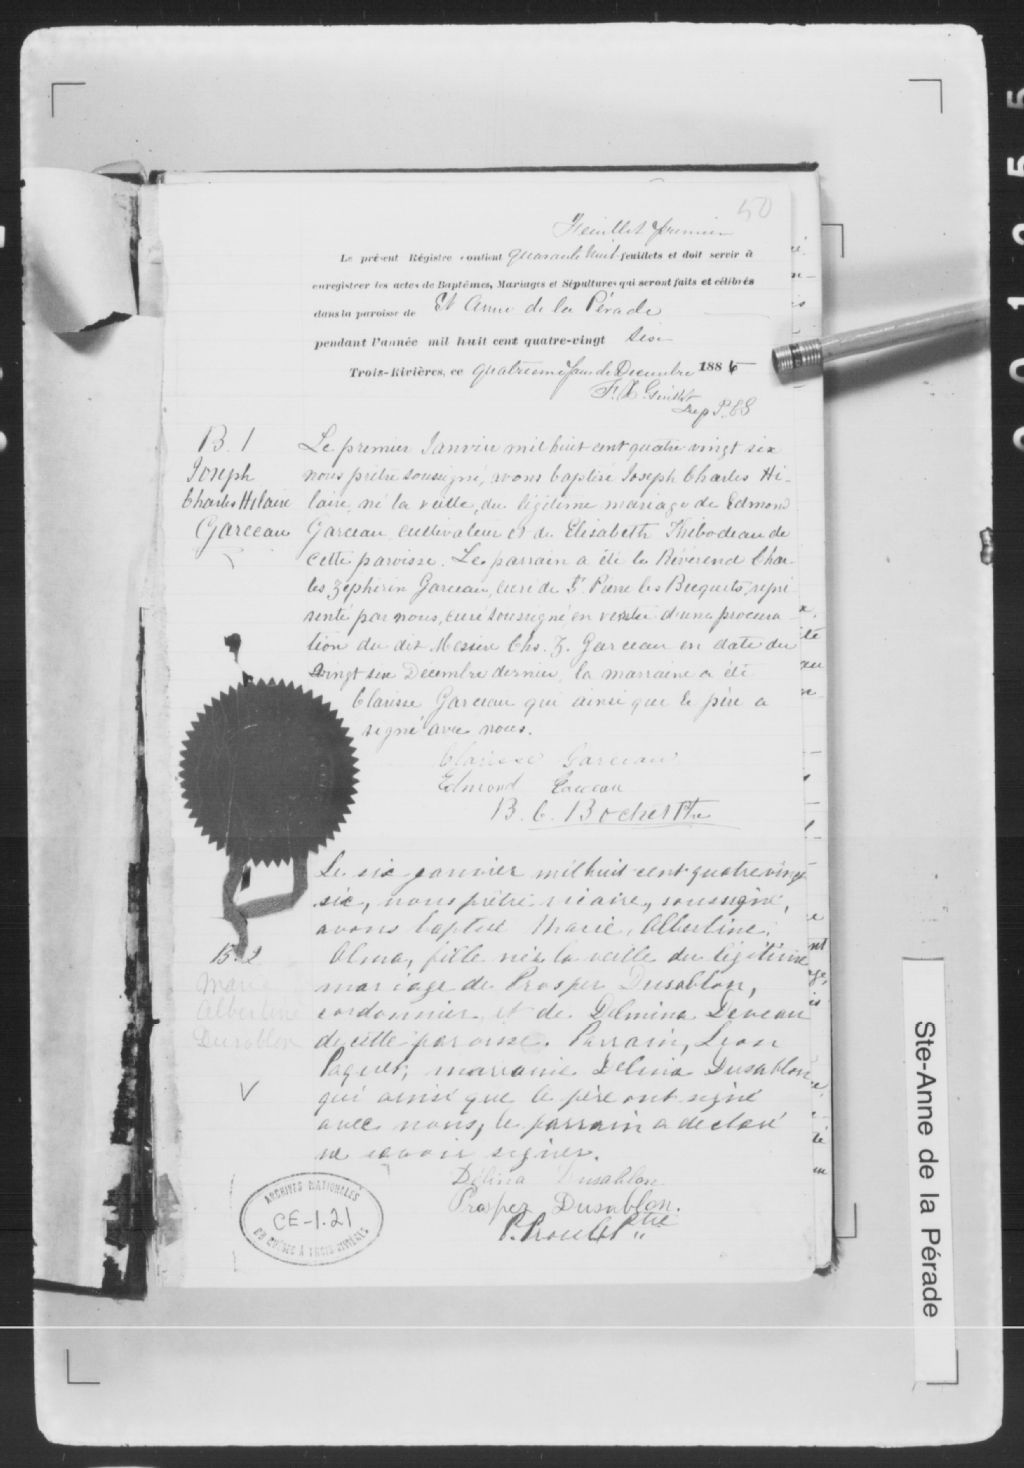 50
Feuillet premier
Le présent Régistre contient quarante huit feuillets et doit servir à
enregistrer les actes de Baptêmes, Mariages et Sépultures qui seront faits et célébrés
dans la paroisse de St Anne de la Pérade
pendant l'année mil huit cent quatre-vingt Six
Trois-Rivières, ce quatrieme jour de Decembre 1885
Dep P.C.S
B. 1
Joseph
Charles Hilaire
Garceau
Le premier Janvier mil huit cent quatre vingt six
nous prêtre soussigné, avons baptisé Joseph Charles Hi-
laire, né la veille, du légitime mariage de Edmond
Garceau cultivateur et de Elisabeth Thibodeau de
cette paroisse. Le parrain a été le Révérend Char-
les Zéphirin Garceau, curé de St Pierre les Becquets, repré
senté par nous, curé soussigné en vertu d'une procura
tion du dit Messire Chs. Z. Garceau en date du
vingt six Décembre dernier, la marraine a été
Clarisse Garceau qui ainsi que le père a
signé avec nous.
Clarisse Garceau
Edmond Garceau
B. C. Bochet Ptre
B. 2
Marie
Albertine
Dusablon
V
Le six janvier mil huit cent quatre vingt
six, nous prêtre vicaire, soussigné,
avons baptisé Marie, Albertine,
Alma, fille née la veille du légitime
mariage de Prosper Dusablon,
cordonnier et de Delmina Deveau
de cette paroisse. Parrain, Leon
Paquet; marraine Delina Dusablon
qui ainsi que le père ont signé
avec nous, le parrain a déclaré
ne savoir signer.
Délina Dusablon
Prosper Dusablon.
P. Proulx Ptre
ARCHIVES NATIONALES
CE-1.21
DU QUÉBEC À TROIS-RIVIÈRES
Ste-Anne de la Pérade